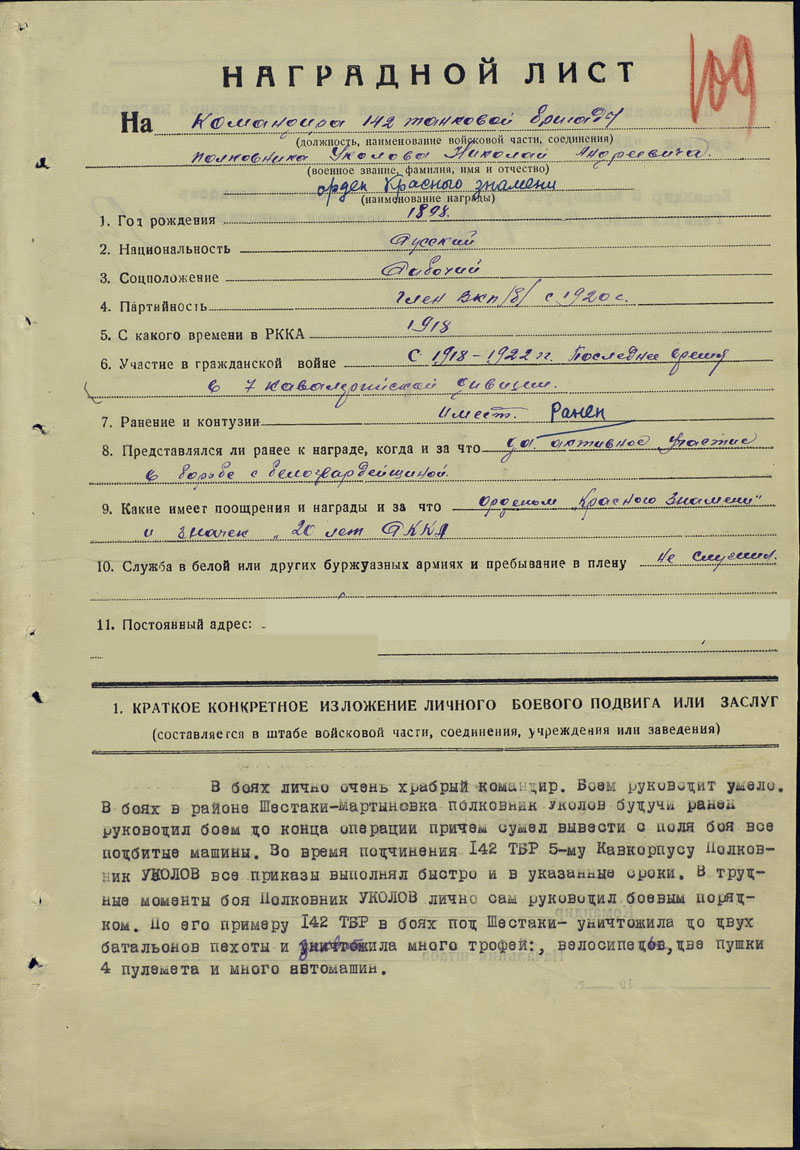 109
НАГРАДНОЙ ЛИСТ
На Командира 142 танковой бригады
(должность, наименование войсковой части, соединения)
Полковника Уколова Николай Андреевича.
(военное звание, фамилия, имя и отчество)
орден Красного знамени
(наименование награды)
1. Год рождения 1898.
2. Национальность Русский
3. Соцположение Рабочий
4. Партийность Член ВКП/б/ с 1920 г.
5. С какого времени в РККА 1918
6. Участие в гражданской войне С 1918-1922 гг. Последнее время
в 7 кавалерийской дивизии.
7. Ранение и контузии Имеет. Ранен
8. Представлялся ли ранее к награде, когда и за что За активное участие
в борьбе с белогвардейщиной.
9. Какие имеет поощрения и награды и за что Орденом "Красного Знамени"
и значек "20 лет РККА
10. Служба в белой или других буржуазных армиях и пребывание в плену Не служил.
11. Постоянный адрес:
1. КРАТКОЕ КОНКРЕТНОЕ ИЗЛОЖЕНИЕ ЛИЧНОГО БОЕВОГО ПОДВИГА ИЛИ ЗАСЛУГ
(составляется в штабе войсковой части, соединения, учреждения или заведения)
В боях лично очень храбрый командир. Боем руководит умело.
В боях в районе Шестаки-Мартыновка полковник Уколов будучи ранен
руководил боем до конца операции причем сумел вывести с поля боя все
подбитые машины. Во время подчинения I42 ТБР 5-му Кавкорпусу Полков-
ник УКОЛОВ все приказы выполнял быстро и в указанные сроки. В труд-
ные моменты боя Полковник УКОЛОВ лично сам руководил боевым поряд-
ком. По его примеру I42 ТБР в боях под Шестаки- уничтожила до двух
батальонов пехоты и уничтожила много трофей:, велосипедов, две пушки
4 пулемета и много автомашин.